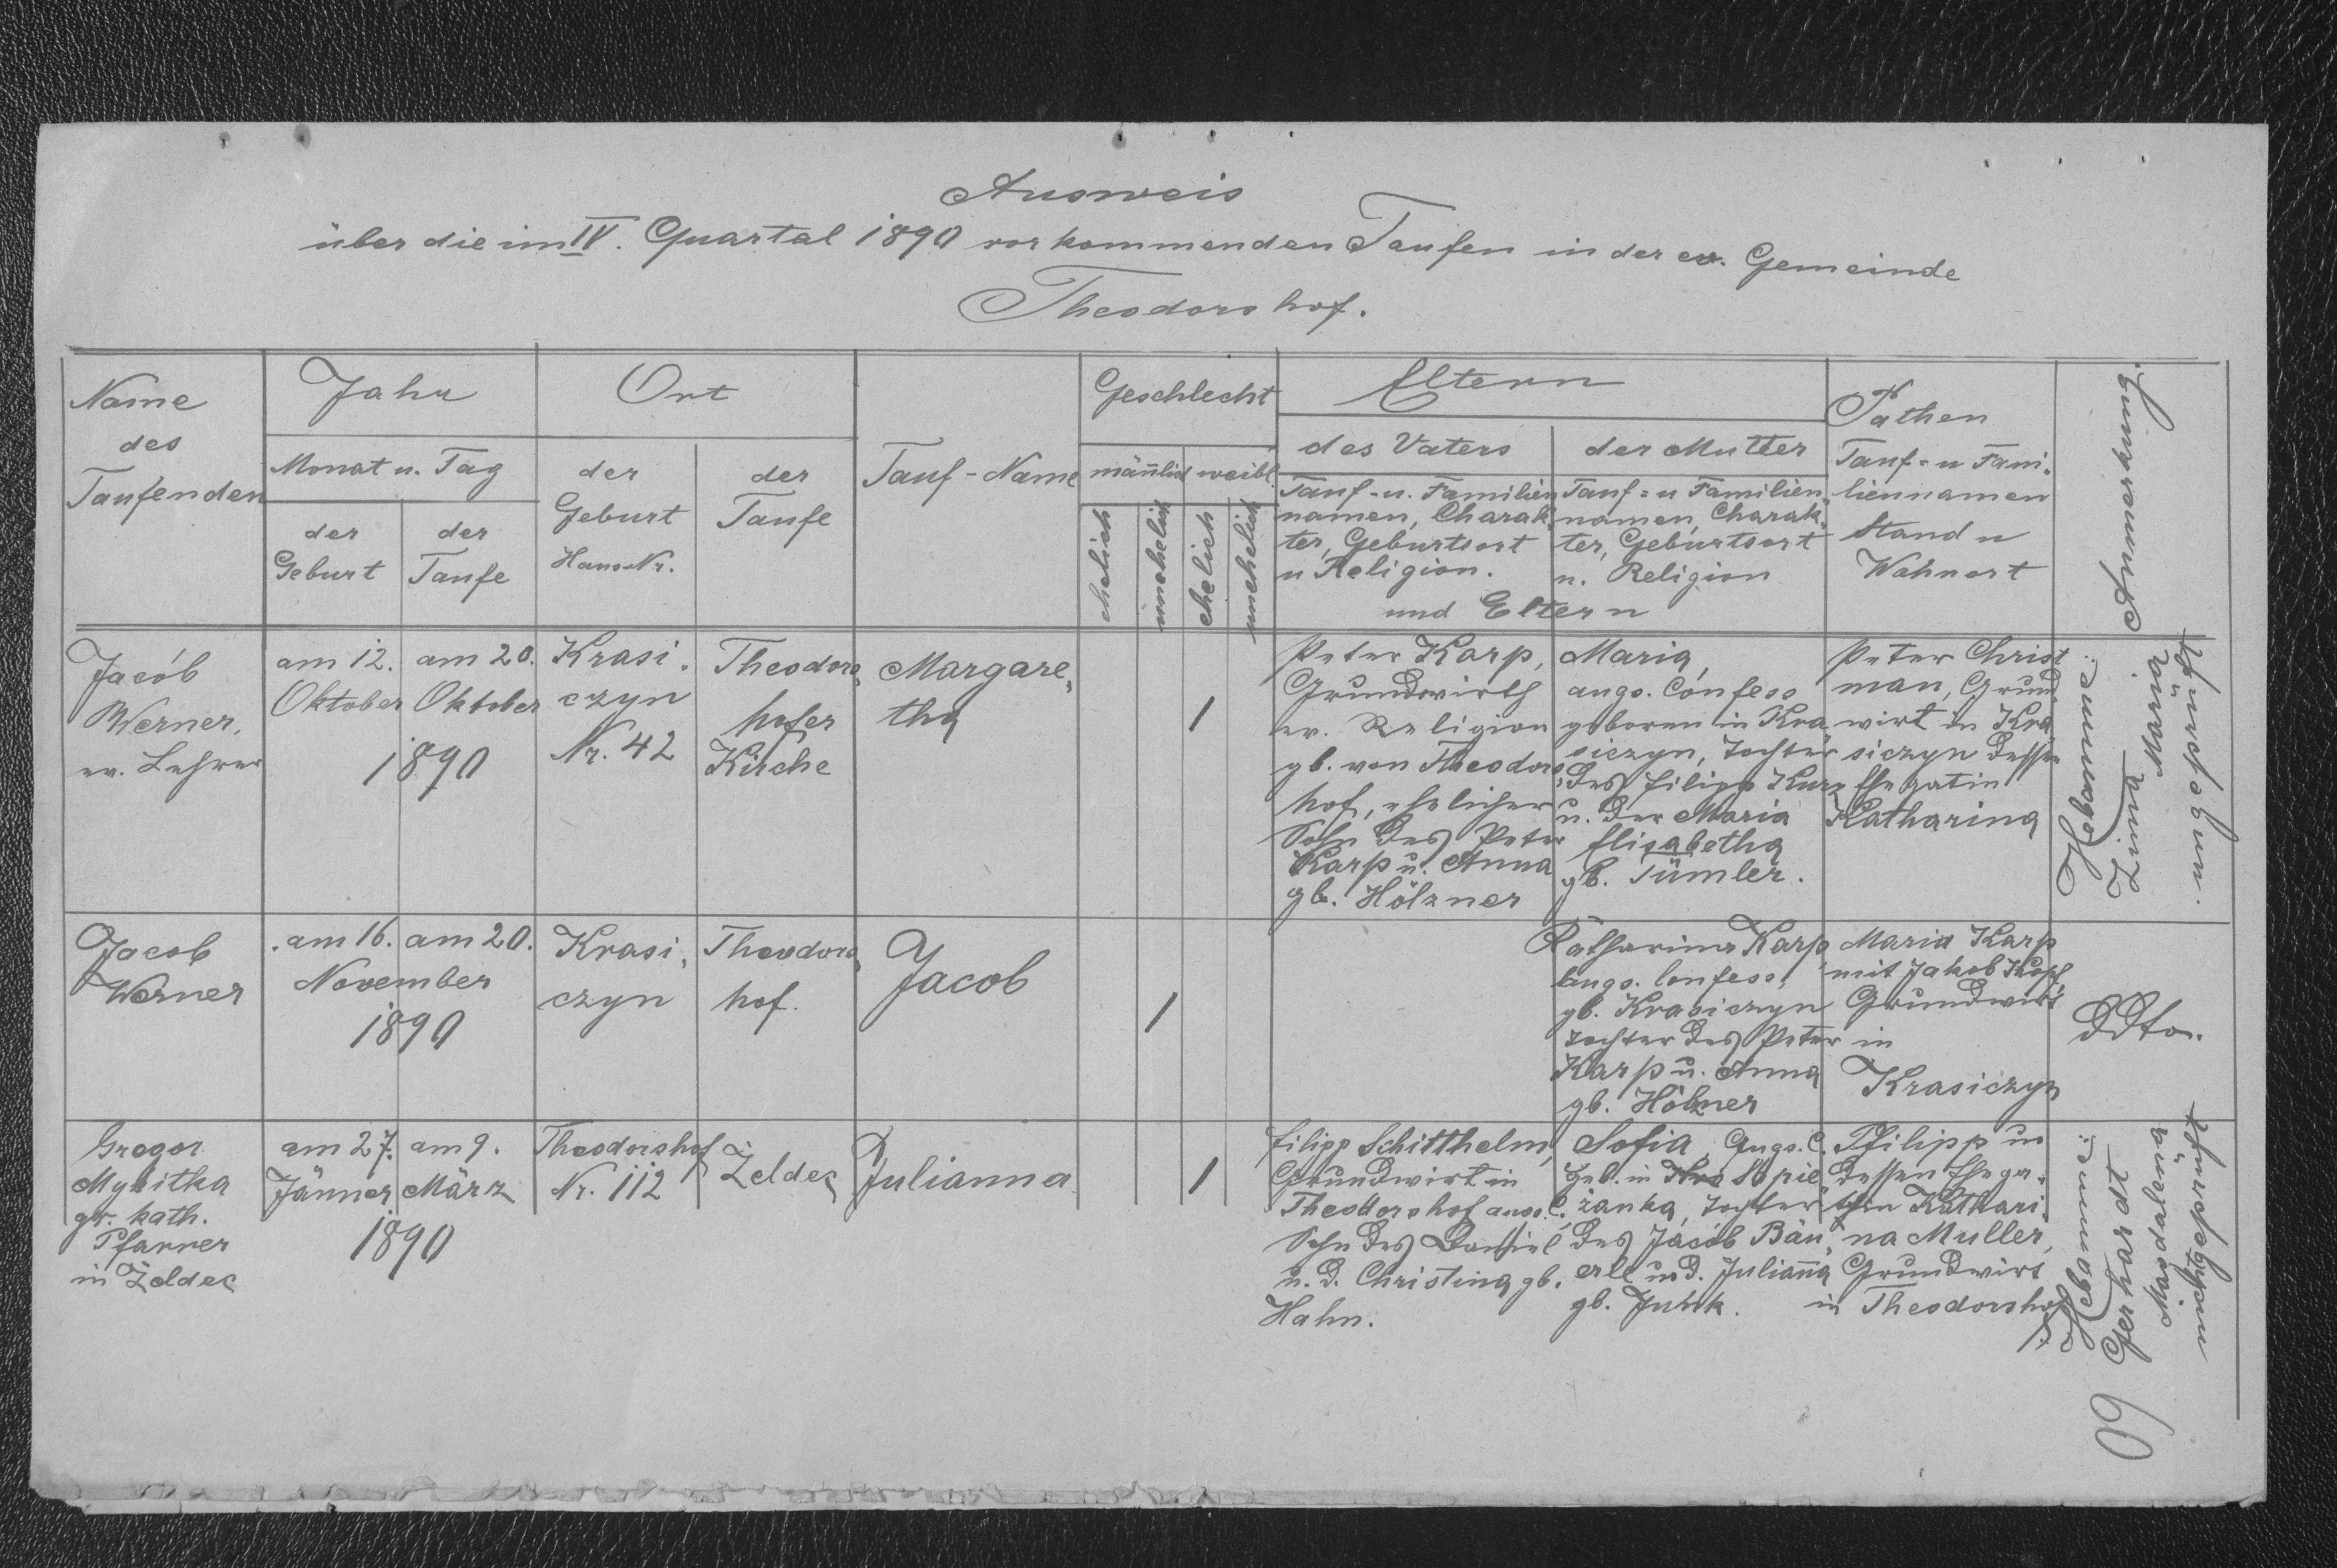 Ausweis
über die im IV. Quartal 1890 vorkommenden Taufen in der ev. Gemeinde
Theodorshof.
Name
des
Taufenden
Jahr
Monat u. Tag
der
Geburt
der
Taufe
Ort
der
Geburt
Haus-Nr.
der
Taufe
Tauf-Name
Geschlecht
männlich weibl.
ehelich
unehelich
ehelich
unehelich
Eltern
des Vaters
Tauf-u. Familien
namen, Charak-
ter, Geburtsort
u Religion.
der Mutter
Tauf=u Familien-
namen, Charak-
ter, Geburtsort
u. Religion
und Eltern
Pathen
Tauf=u Fami-
liennamen
Stand u
Wohnort
Anmerkung.
Jacób
Werner,
ev. Lehrer
am 12.
Oktober
am 20.
Oktober
1890
Krasi-
czyn
Nr. 42
Theodors-
hofer
Kirche
Margare-
tha
1
Peter Karp,
Grundwirth
ev. Religion
gb. von Theodors-
hof, ehelicher
Sohn des Peter
Karp u. Anna
gb. Hölzner
Maria,
augs. Confess
geboren in Kra-
siczyn, Tochter
des Filipp Kurz
u. der Maria
Elisabetha
gb. Tümler.
Peter Christ
man, Grund-
wirt in Kra-
siczyn dessen
Ehegatin
Katharina
Hebamme:
Jacob
Werner
am 16. am 20.
November
1890
Krasi-
czyn
Theodors-
hof.
Jacob
1
Katharina Karp
augs. Confess.
gb. Krasiczyn
Tochter des Peter
Karp u. Anna
gb. Hölzner
Maria Karp
mit Jakob
Grundwirt
in
Krasiczyn
ddto.
Gregor
Mykitka
gr. kath.
Pfarrer
in Żeldec
am 27.
Jänner
am 9.
März
1890
Theodorshof
Nr. 112
Żeldec
Julianna
1
Filipp Schitthelm,
Grundwirt in
Theodorshof augs. C.
Sohn des Daniel
u. d. Christina gb.
Hahn.
Sofia, Augs. C.
Geb. in Spie-
żanka, Tochter
des Jacób Bäu-
erle u d. Julianna
gb.
Filipp u
dessen Ehega-
tin Kathari-
na Muller,
Grundwirt
in Theodorshof
Hebamme:
Gerhardt
60